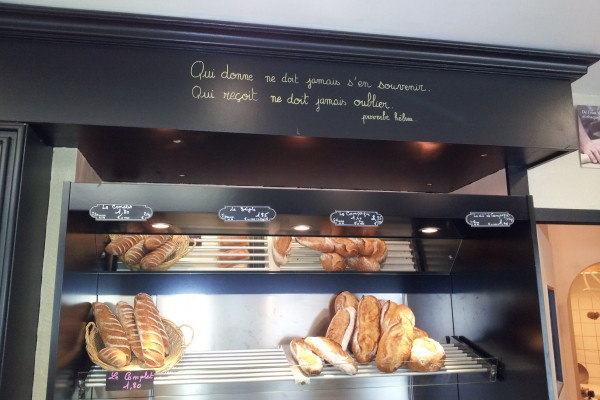 Qui donne ne doit jamais s'en souvenir.
Qui reçoit ne doit jamais oublier.
proverbe hébreu
Le Complet
1,80
Le Triple
1,95
La Campagne
Le Complet
1,80